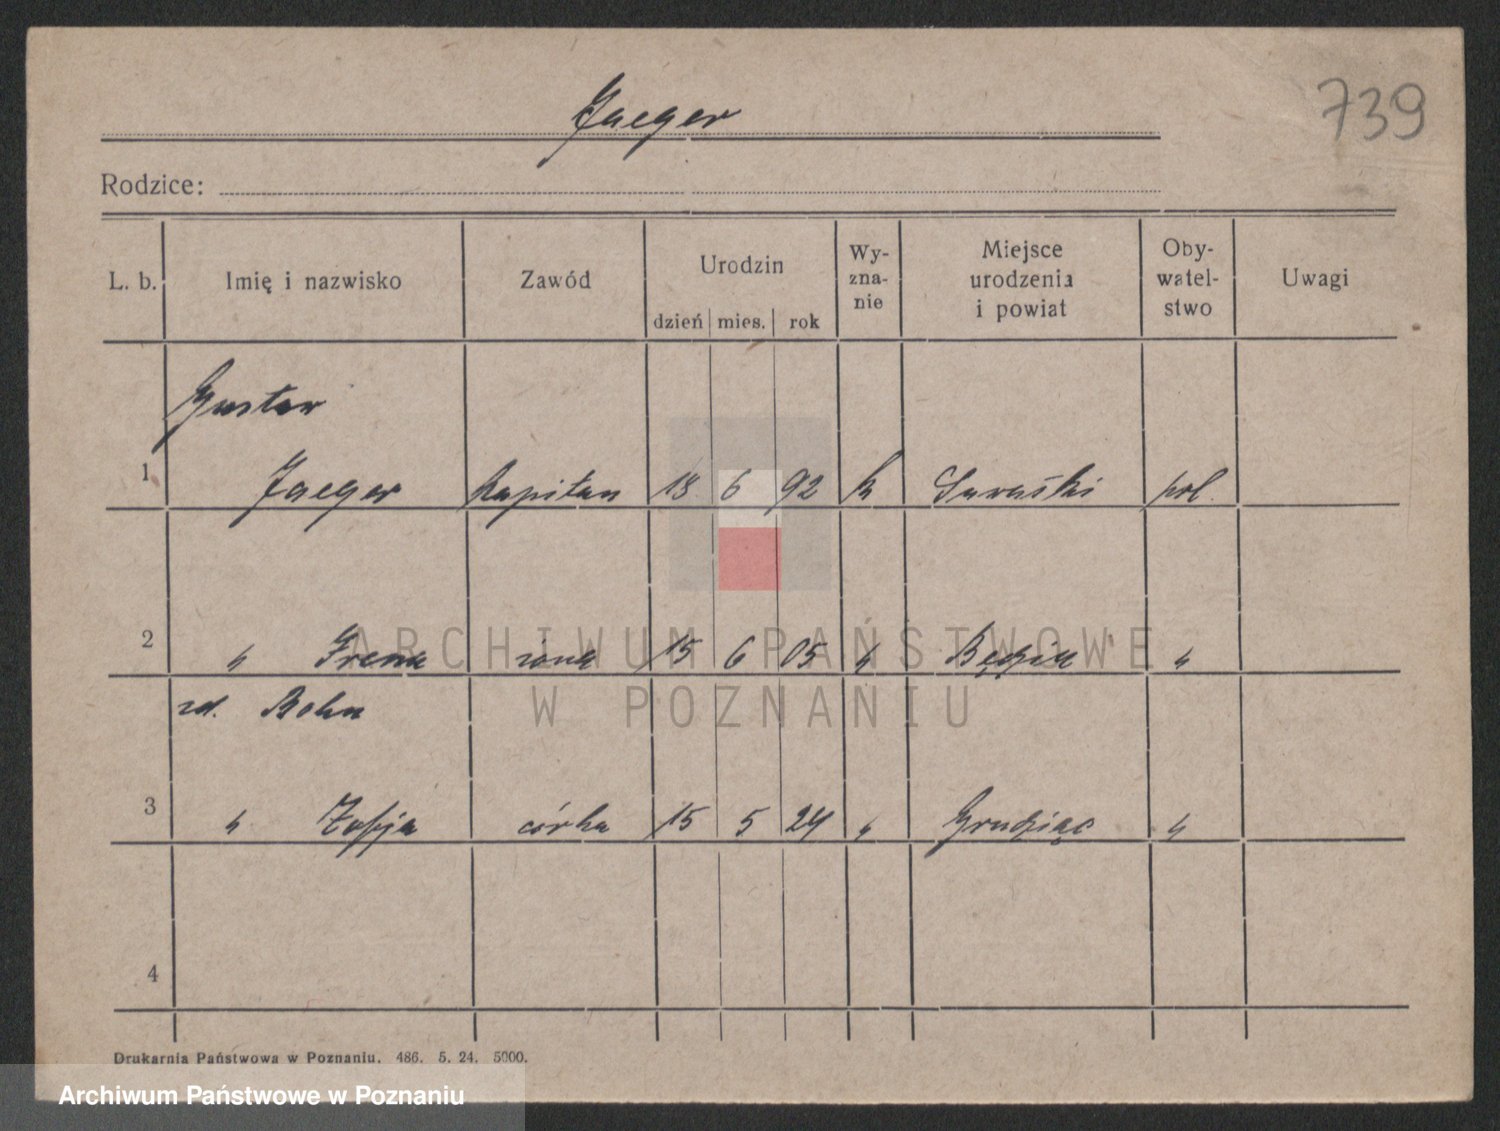 739
Jaeger
Rodzice:
L. b. Imię i nazwisko Zawód Urodzin dzień mies. rok Wy-zna-nie Miejsce urodzenia i powiat Oby-watel-stwo Uwagi
Gustaw
1 Jaeger kapitan 18 6 92 k pol.
2 " Irena żona 15 6 05 " "
zd. Bohn
3 " Zofja córka 15 5 24 " Grudziąc "
4
Drukarnia Państwowa w Poznaniu. 486. 5. 24. 5000.
ARCHIWUM PAŃSTWOWE
W POZNANIU
Archiwum Państwowe w Poznaniu